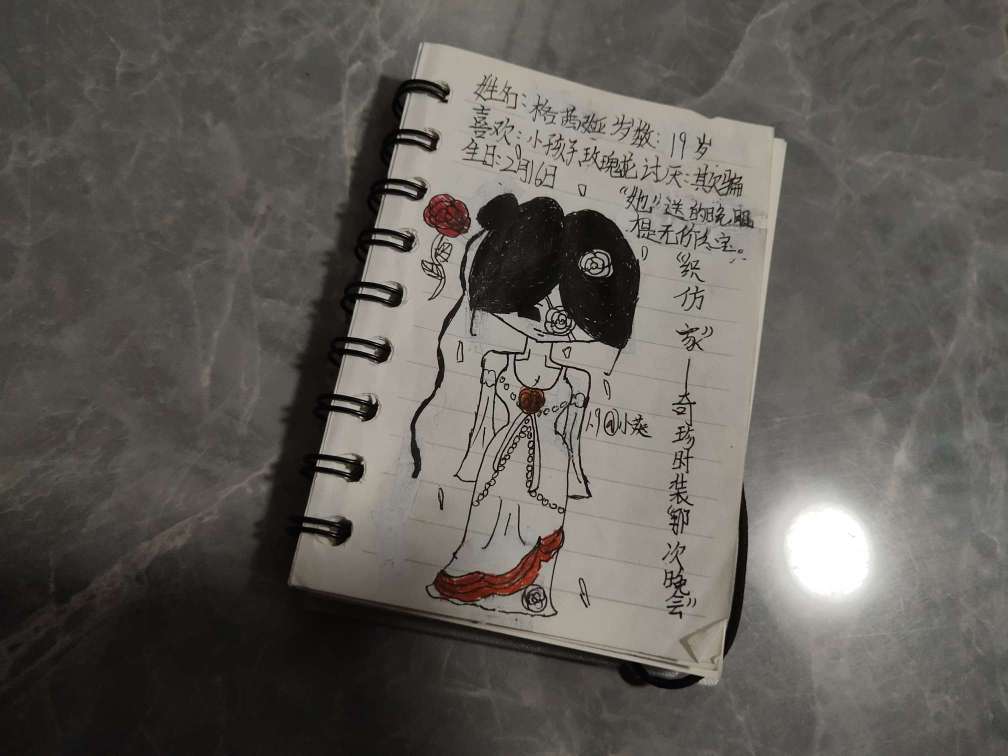 姓名:格茜娅 岁数:19岁
喜欢:小孩子,玫瑰花 讨厌:欺骗
生日:2月16日
“她”送的晚服
相是无价法宝。
“织仿家”—奇珍时装“那次晚会”
19@小爽